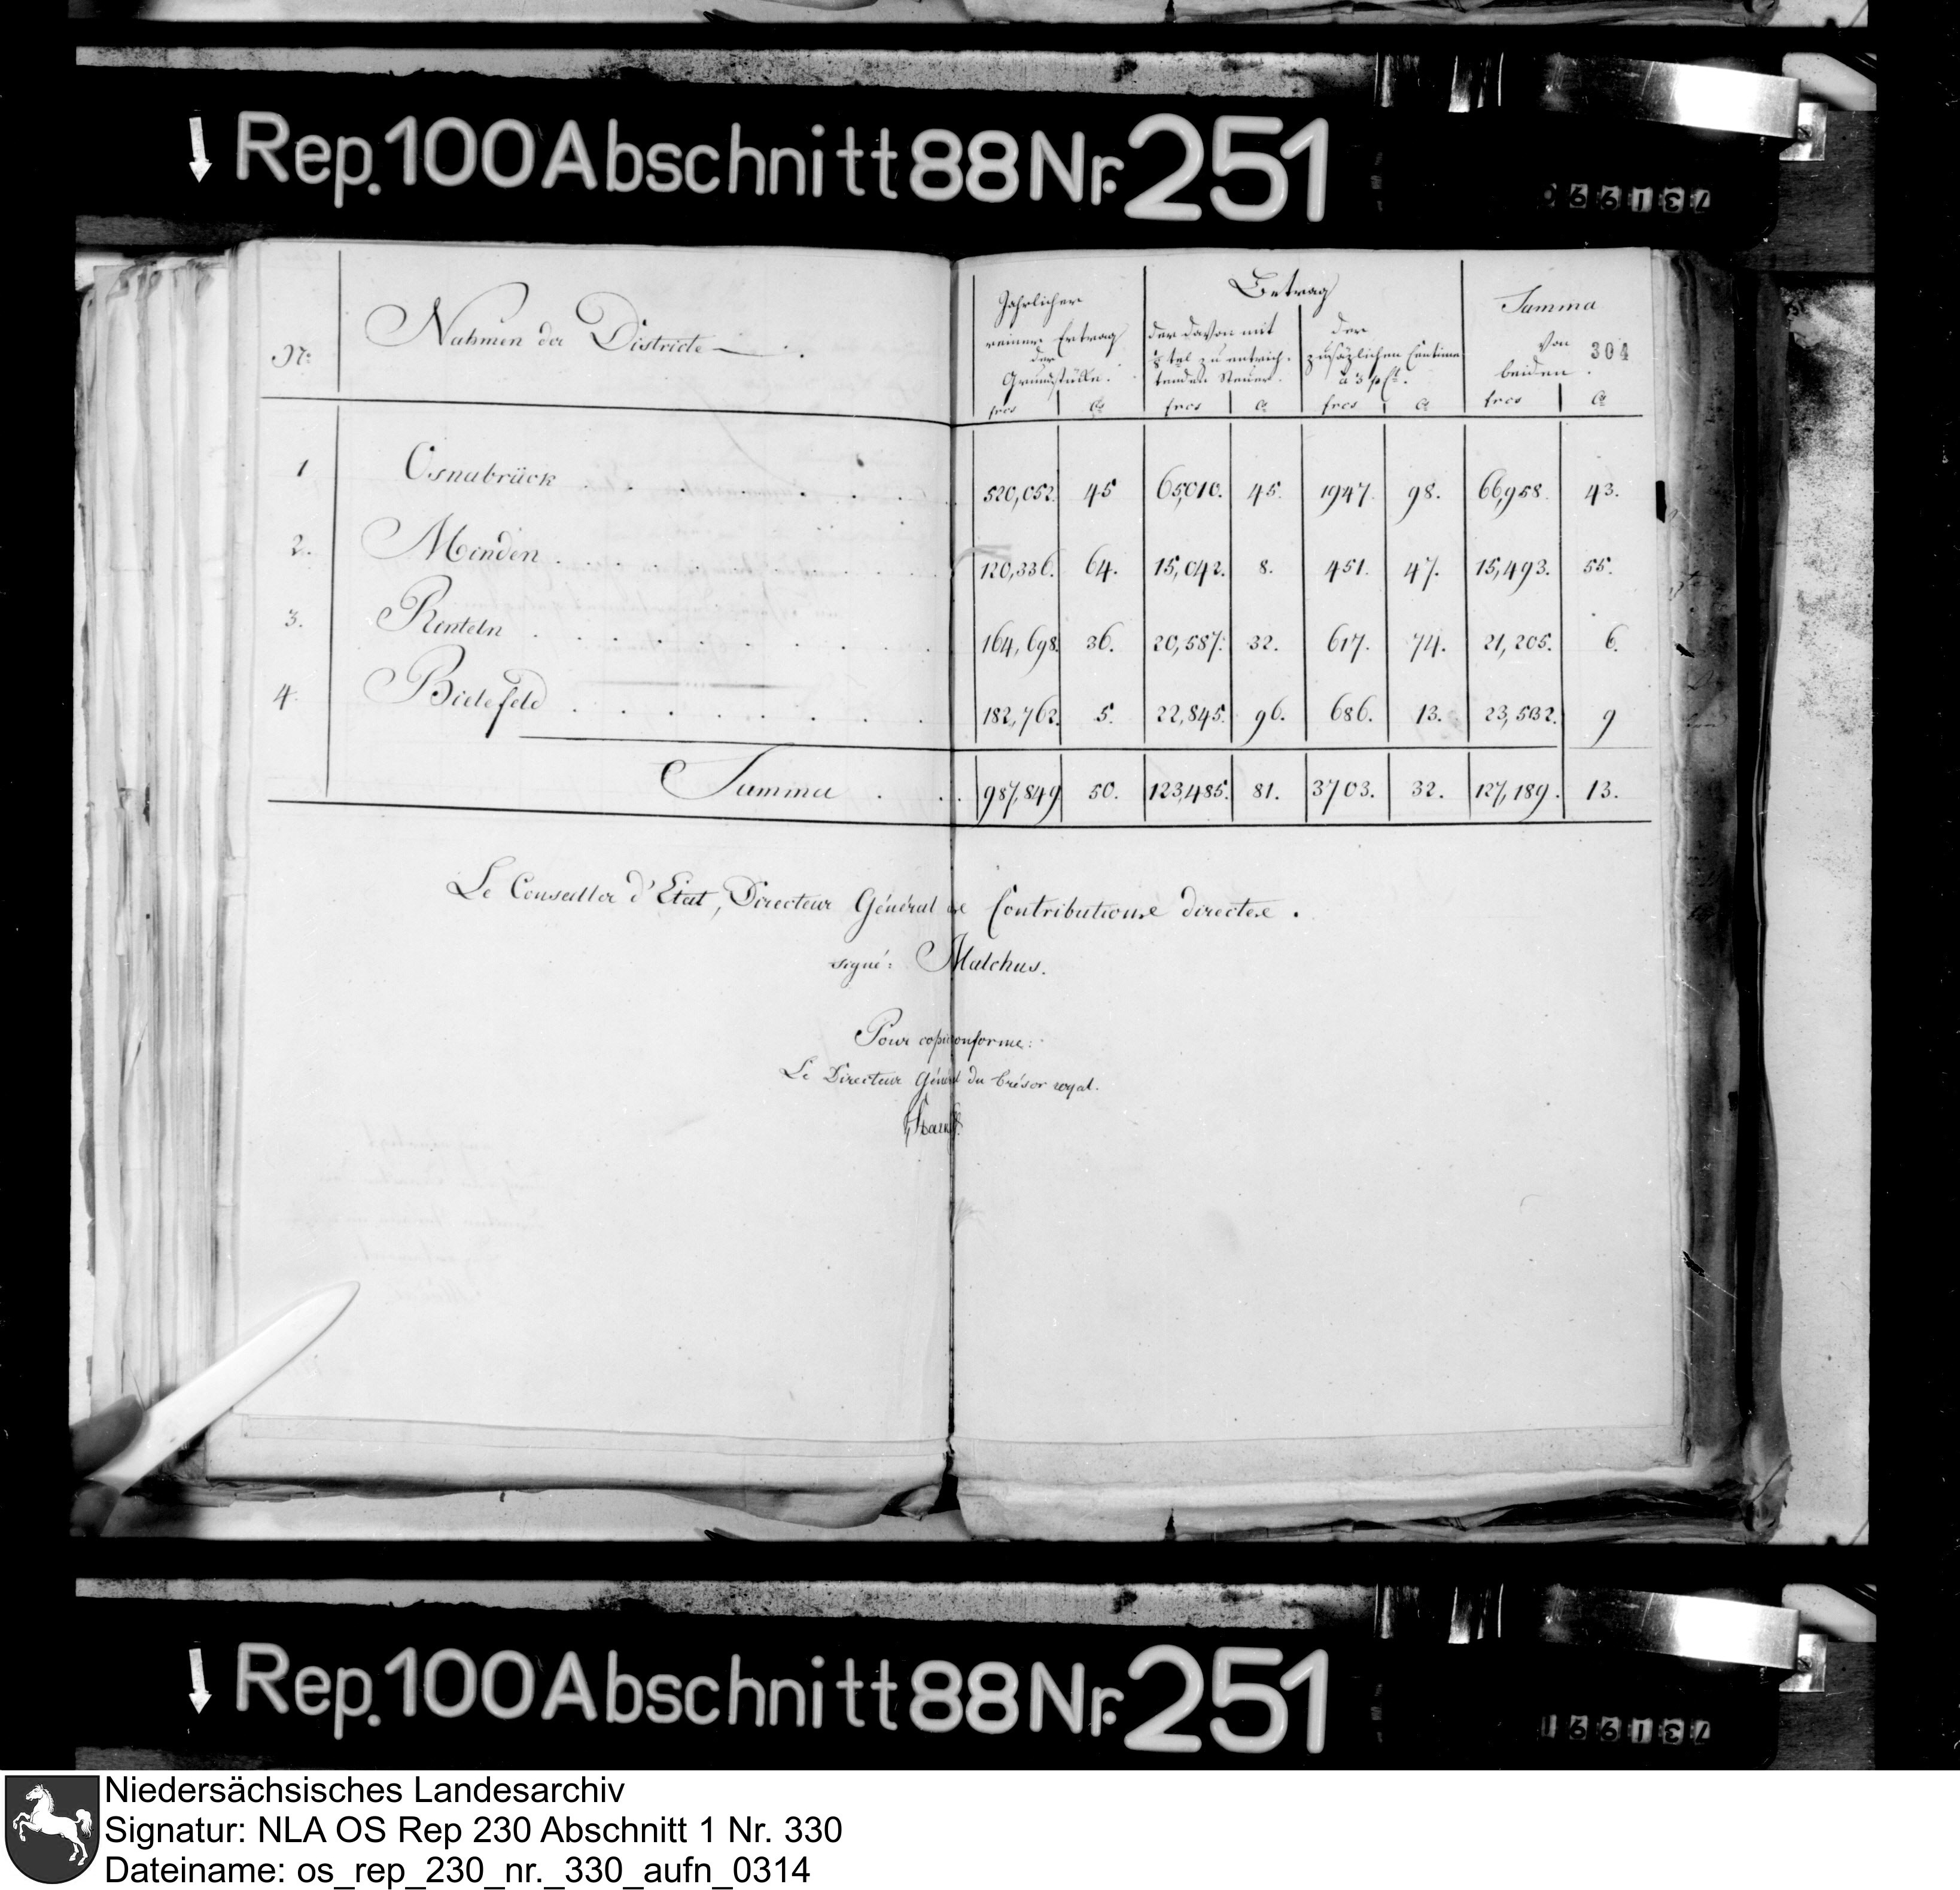 Rep. 100 Abschnitt 88 Nr. 251
731990
Betrag
Jahrlicher Summa
Nahmen der Districte reiner Ertrag der davon mit der von 304
No: der 1/8 tel zu entrich- zusäzlichen Centimen beiden.
Grundstücke. tenden Steuer. à 3 pCt.
frcs Cs frcs Cs frcs Cs frcs Cs
1 Osnabrück 520,052. 45 65,010. 45. 1947. 98. 66,958. 43.
2. Minden 120,336. 64. 15,042. 8. 451. 47. 15,493. 55.
3. Rinteln 164,698. 36. 20,587. 32. 617. 74. 21,205. 6.
4. Bielefeld 182,762. 5. 22,845. 96. 686. 13. 23,532. 9
Summa 987,849 50. 123,485. 81. 3703. 32. 127,189. 13.
Le Conseiller d'Etat, Directeur Général de Contributions directes.
signé: Malchus.
Pour copie conforme:
Le Directeur Général du trésor royal.
Rep. 100 Abschnitt 88 Nr. 251
731991
Niedersächsisches Landesarchiv
Signatur: NLA OS Rep 230 Abschnitt 1 Nr. 330
Dateiname: os_rep_230_nr._330_aufn_0314